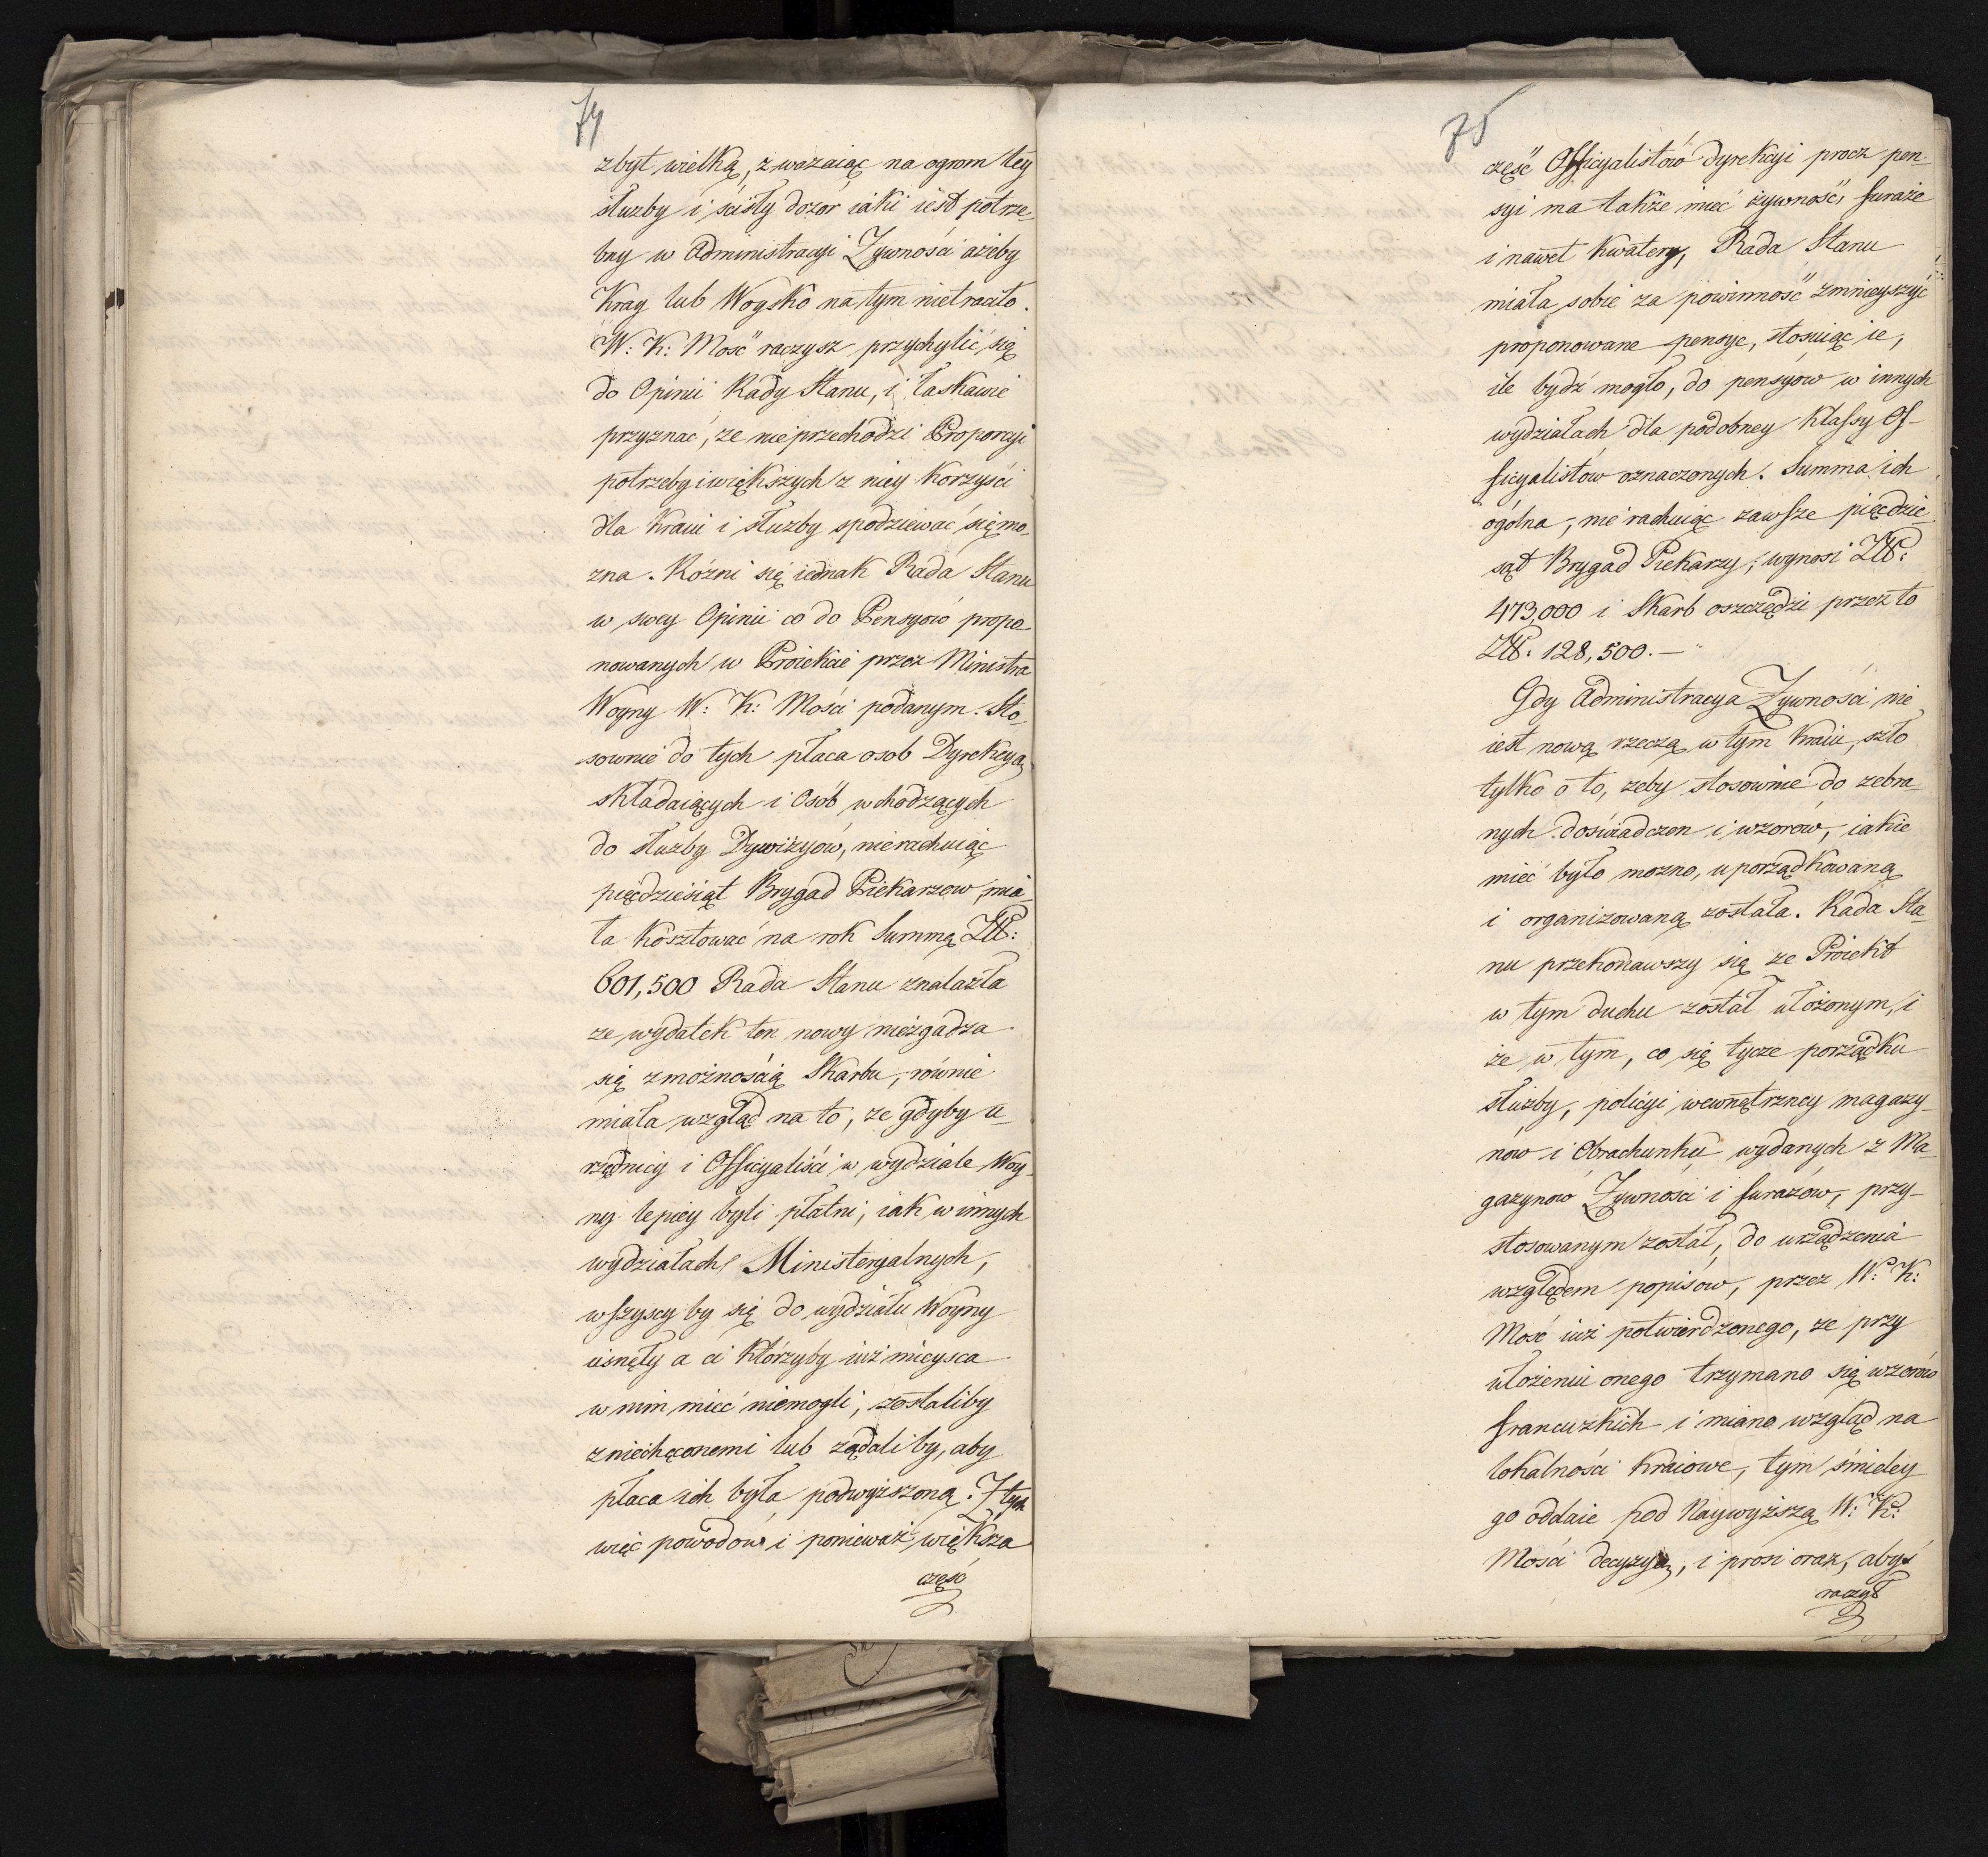 74
zbyt wielką, zważaiąc na ogrom tey
służby i ścisły dozór iaki iest potrze-
bny w Administracyi Żywności ażeby
Kray lub Woysko na tym nietraciło.
W: K: Mość raczysz przychylić się
do Opinii Rady Stanu, i łaskawie
przyznać, że nieprzechodzi Proporcyi
potrzeby i większych z niey korzyści
dla Kraiu i służby spodziewać się mo-
żna. Różni się iednak Rada Stanu
w swey Opinii co do Pensyów propo-
nowanych w Proiekcie przez Ministra
Woyny W: K: Mości podanym. Sto-
sownie do tych płaca osob Dyrekcyą
składaiących i Osób wchodzących
do służby Dywizyów, nierachuiąc
pięćdziesiąt Brygad Piekarzow, mia-
ła kosztować na rok Summą Złł:
601,500 Rada Stanu znalazła
że wydatek ten nowy niezgadza
się z możnością Skarbu, równie
miała wzgląd na to, że gdyby u-
rzędnicy i Officyaliści w wydziale Woy-
ny lepiey byli płatni, iak w innych
wydziałach Ministeryalnych,
wszyscy by się do wydziału Woyny
cisnęły a ci którzyby iuż mieysca
w nim mieć niemogli, zostaliby
zniechęconemi lub żądaliby, aby
płaca ich była podwyższoną. Z tych
więc powodow i ponieważ większa
część
75
część Officyalistów dyrekcyi procz pen-
syi ma także mieć żywność, furaże
i nawet kwatery, Rada Stanu
miała sobie za powinność zmnieyszyć
proponowane pensye, stosuiąc ie,
ile bydź mogło, do pensyow w innych
wydziałach dla podobney klassy Of-
ficyalistów oznaczonych. Summa ich
ogólna, nie rachuiąc zawsze pięćdzie-
siąt Brygad Piekarzy, wynosi Złł:
473,000 i Skarb oszczędzi przez to
Złł. 128,500.—
Gdy Administracya Żywności nie
iest nową rzeczą w tym Kraiu, szło
tylko o to, żeby stosownie do zebra-
nych doświadczen i wzorow, iakie
mieć było można, uporządkowaną
i organizowaną została. Rada Sta-
nu przekonawszy się że Proiekt
w tym duchu został ułożonym, i
że w tym, co się tycze porządku
służby, policyi wewnątrzney magazy-
nów i Obrachunku wydanych z Ma-
gazynow Żywności i furażów, przy-
stosowanym został, do urządzenia
względem popisów, przez W: K:
Mość iuż potwierdzonego, że przy
ułożeniu onego trzymano się wzorów
francuzkich i miano wzgląd na
lokalności kraiowe, tym śmieley
go oddaie pod Naywyższą W: K:
Mości decyzyą, i prosi oraz, abyś
raczył